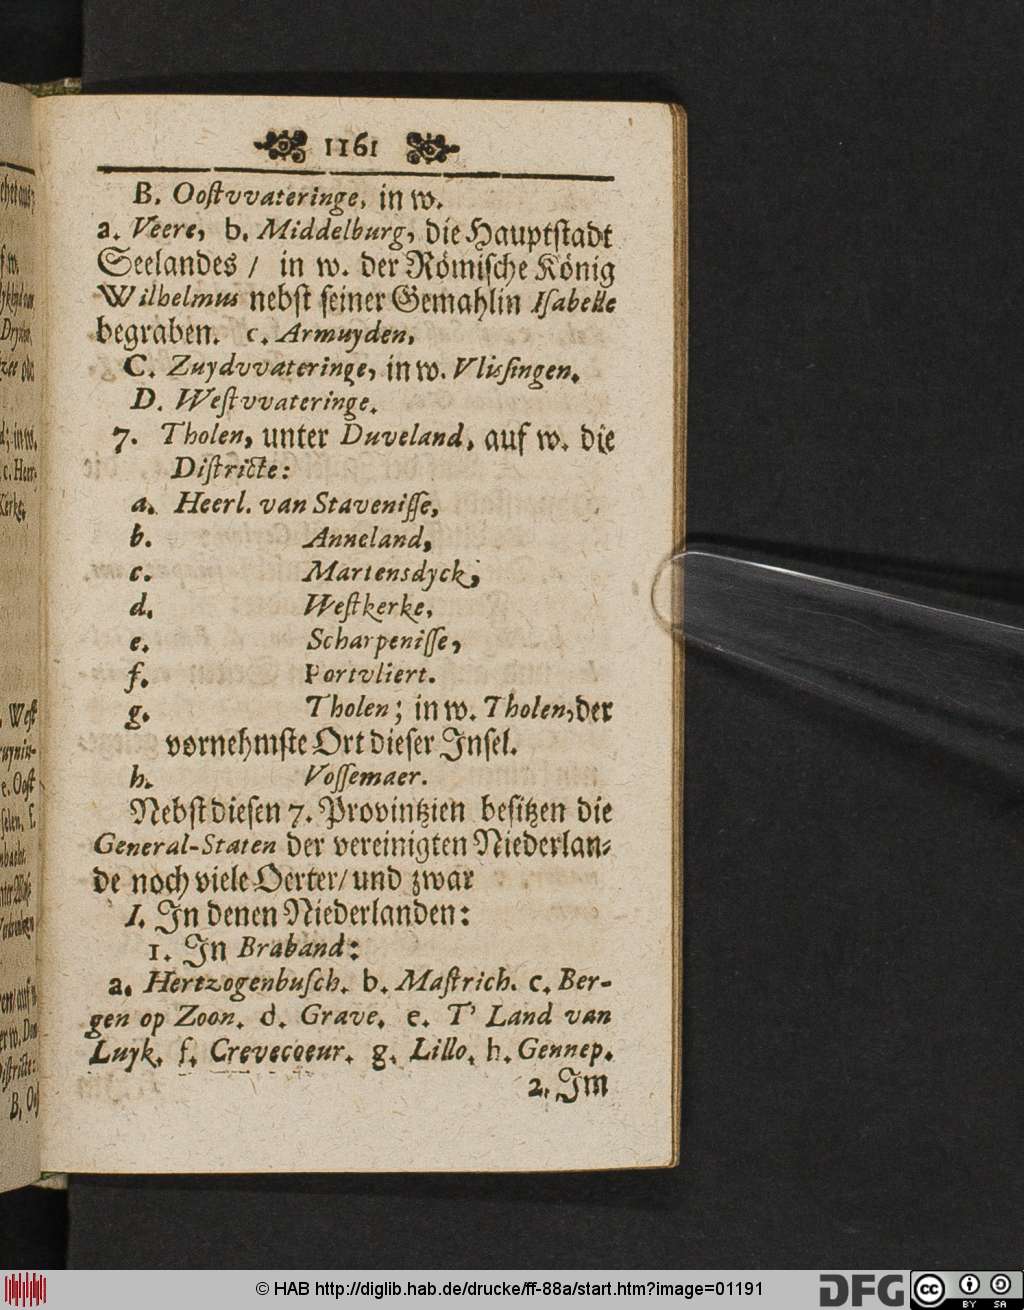 1161
B. Ooſtvvateringe, in w.
a. Veere, b. Middelburg, die Hauptſtadt
Seelandes / in w. der Römiſche König
Wilhelmus nebſt ſeiner Gemahlin Iſabelle
begraben. c. Armuyden.
C. Zuydvvateringe, in w. Vliſſingen.
D. Weſtvvateringe.
7. Tholen, unter Duveland, auf w. die
Diſtricte:
a. Heerl. van Staveniſſe,
b. Anneland,
c. Martensdyck,
d. Weſtkerke,
e. Scharpeniſſe,
f. Portvliert.
g. Tholen; in w. Tholen, der
vornehmſte Ort dieſer Inſel.
h. Voſſemaer.
Nebſt dieſen 7. Provintzien beſitzen die
General-Staten der vereinigten Niederlan-
de noch viele Oerter / und zwar
I. In denen Niederlanden:
1. In Braband:
a. Hertzogenbuſch. b. Maſtrich. c. Ber-
gen op Zoon. d. Grave. e. T' Land van
Luyk. f. Crevecoeur. g. Lillo. h. Gennep.
2. Im
© HAB http://diglib.hab.de/drucke/ff-88a/start.htm?image=01191
DFG
cc
BY SA